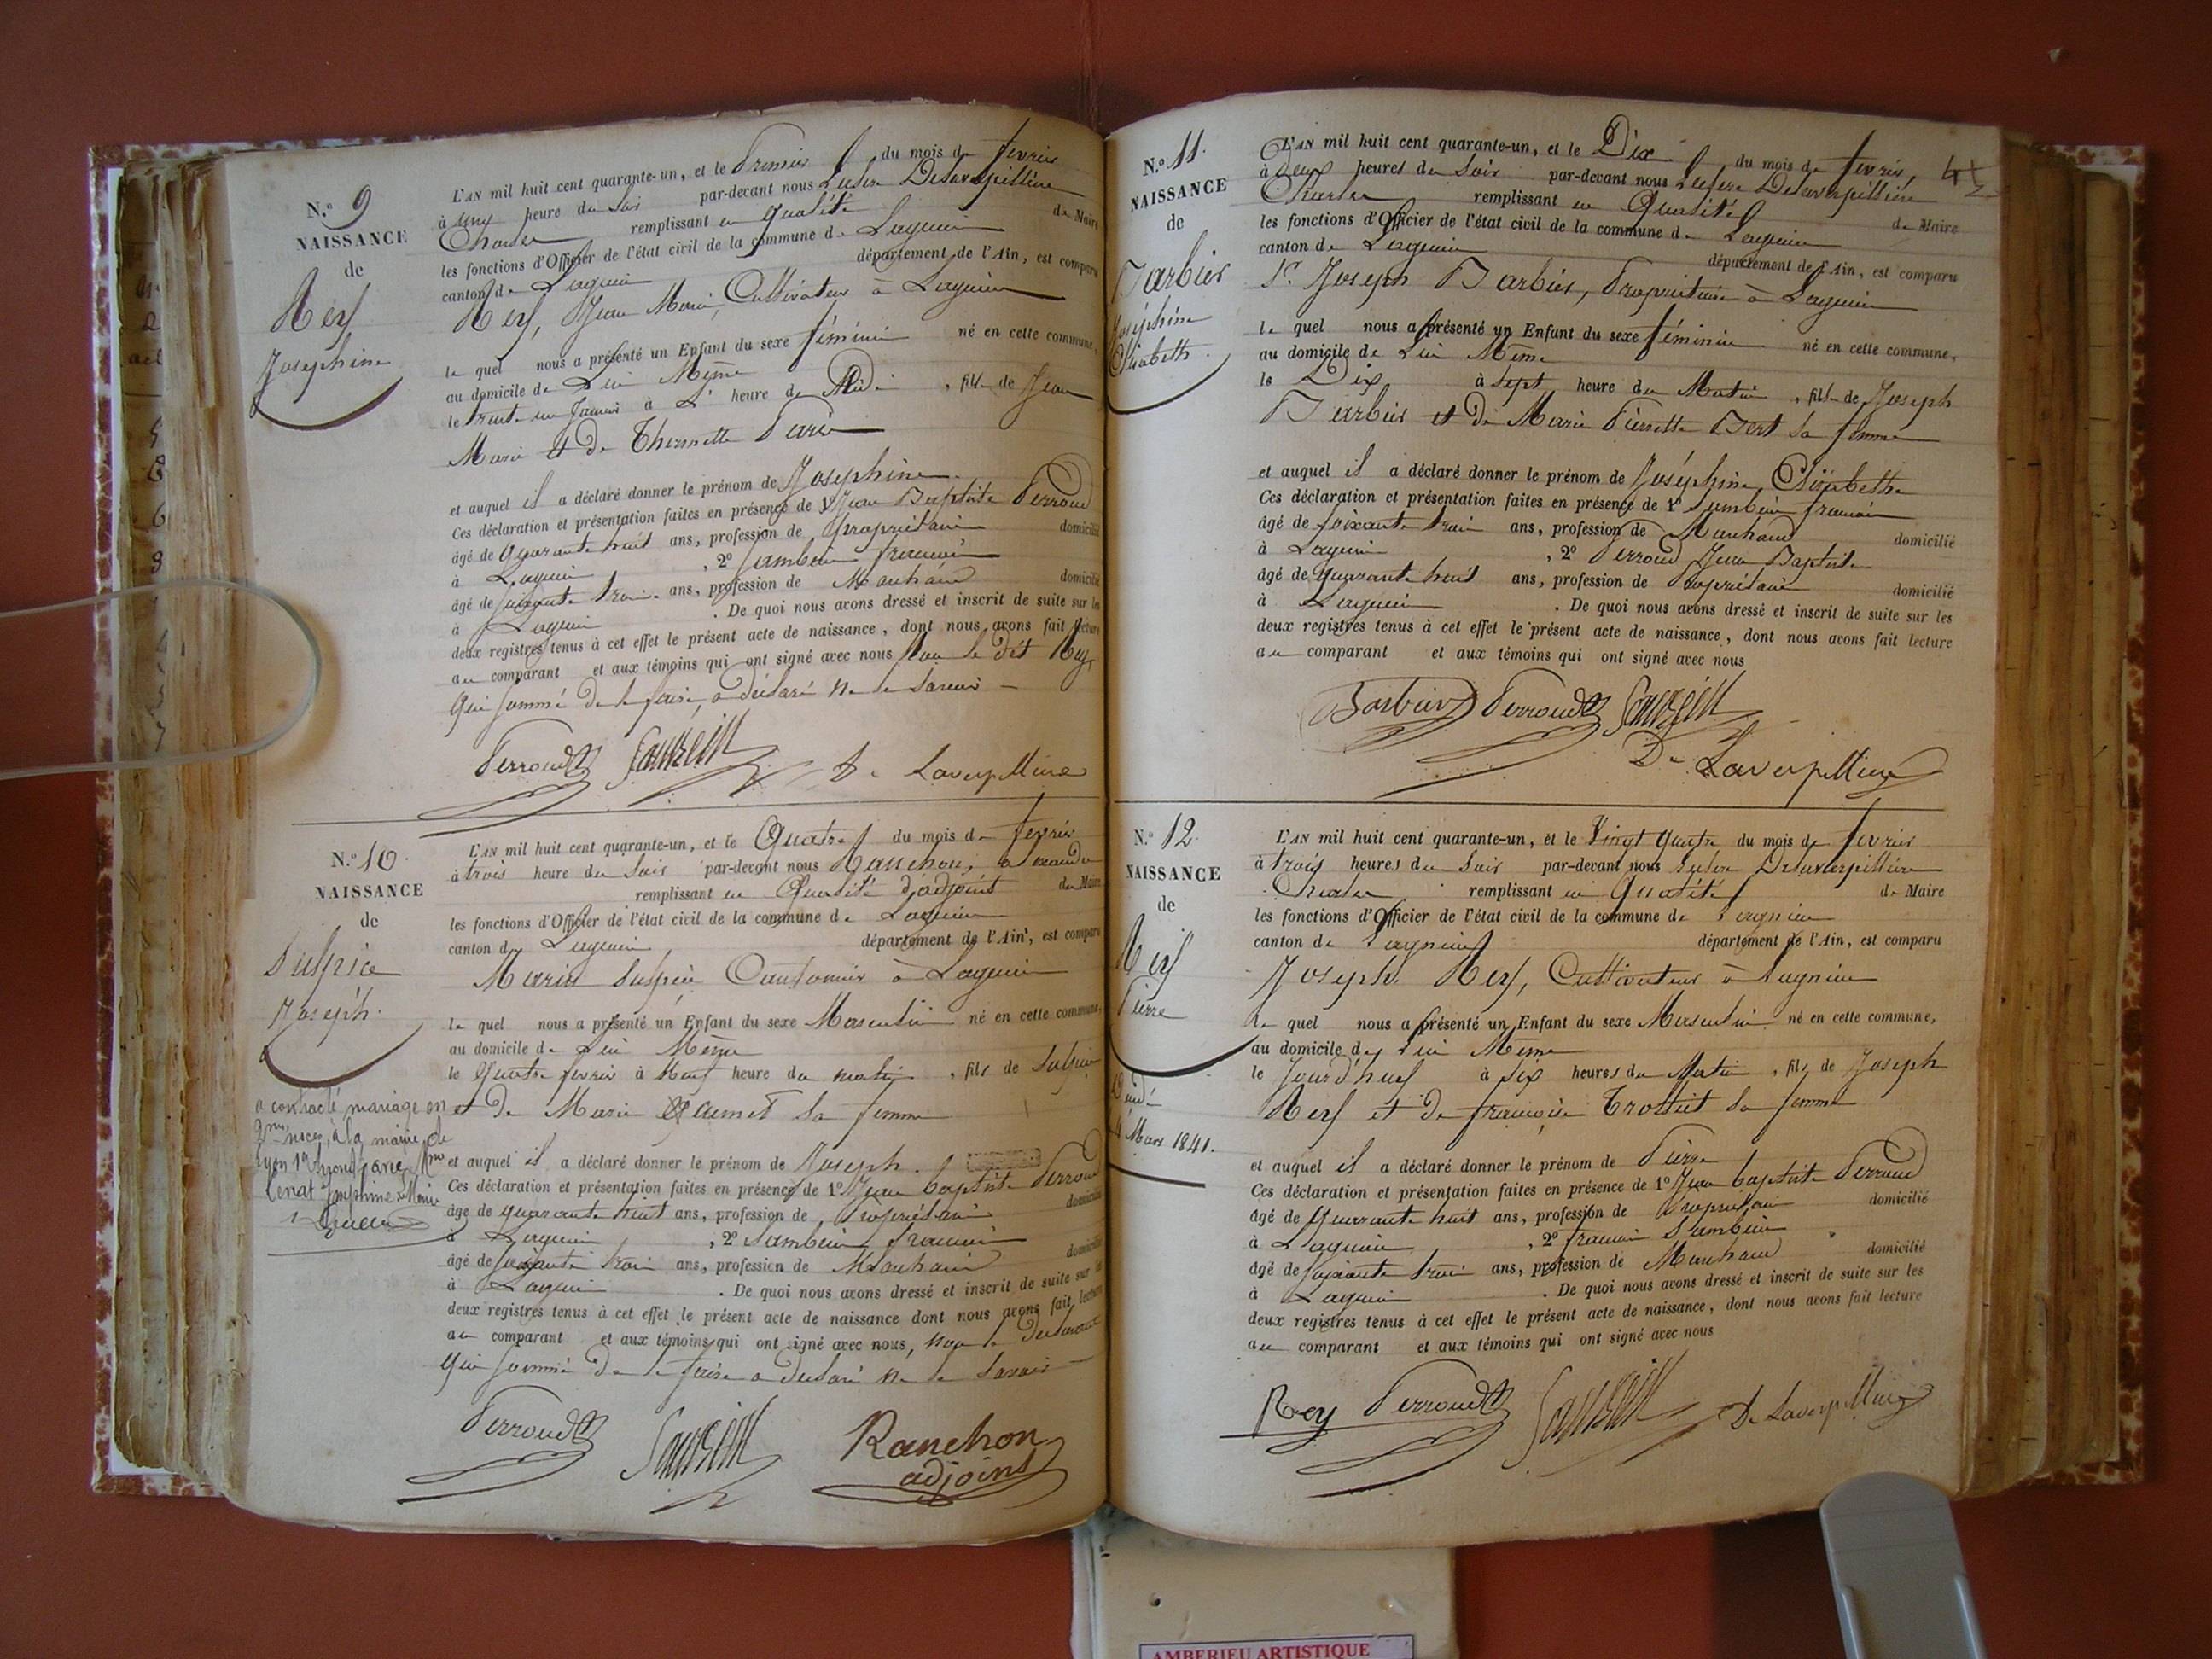 N.º 9
NAISSANCE
de
Rey
Josephine
L'AN mil huit cent quarante-un, et le Premier du mois de fevrier
à une heure du Soir par-devant nous Delaverpillière
Charles remplissant en qualité de Maire
les fonctions d'Officier de l'état civil de la commune de Lagnieu
canton de Lagnieu département de l'Ain, est comparu
Rey, Jean Marie, Cultivateur à Lagnieu
le quel nous a présenté un Enfant du sexe féminin né en cette commune,
au domicile de Lui Même
le trente un Janvier à L' heure de Midi, fille de Jean
Marie et de
et auquel il a déclaré donner le prénom de Josephine
Ces déclaration et présentation faites en présence de 1º Jean Baptiste Perroud
âgé de quarante huit ans, profession de propriétaire domicilié
à Lagnieu, 2º français
âgé de soixante trois ans, profession de Marchand domicilié
à Lagnieu. De quoi nous avons dressé et inscrit de suite sur les
deux registres tenus à cet effet le présent acte de naissance, dont nous avons fait lecture
au comparant et aux témoins qui ont signé avec nous non le dit Rey,
qui sommé de le faire, a déclaré ne le savoir
Perroud De Laverpilliere
N.º 10
NAISSANCE
de
Sulpice
Joseph
a contracté mariage en
2mes noces, à la mairie de
Lyon 1er avec Mme
Josephine Marie
L'AN mil huit cent quarante-un, et le Quatre du mois de fevrier
à trois heure du Soir par-devant nous Ranchon,
remplissant en Qualité d'adjoint du Maire
les fonctions d'Officier de l'état civil de la commune de Lagnieu
canton de Lagnieu département de l'Ain, est comparu
Marin Sulpice Cantonnier à Lagnieu
le quel nous a présenté un Enfant du sexe Masculin né en cette commune,
au domicile de Lui Même
le Quatre fevrier à Neuf heure du matin, fils de Sulpice
et de Marie sa femme
et auquel il a déclaré donner le prénom de Joseph.
Ces déclaration et présentation faites en présence de 1º Jean baptiste Perroud
âgé de quarante huit ans, profession de Propriétaire domicilié
à Lagnieu, 2º français
âgé de soixante trois ans, profession de Marchand domicilié
à Lagnieu. De quoi nous avons dressé et inscrit de suite sur les
deux registres tenus à cet effet le présent acte de naissance dont nous avons fait lecture
au comparant et aux témoins qui ont signé avec nous, non le
qui sommé de le faire a déclaré ne le savoir
Perroud Ranchon
adjoint
N.º 11.
NAISSANCE
de
Barbier
Joséphine
Elisabeth.
L'AN mil huit cent quarante-un, et le Dix du mois de fevrier,
à Deux heures du Soir par-devant nous Delaverpillière
Charles remplissant en Qualité de Maire
les fonctions d'Officier de l'état civil de la commune de Lagnieu
canton de Lagnieu département de l'Ain, est comparu
Sr. Joseph Barbier, Propriétaire à Lagnieu
le quel nous a présenté un Enfant du sexe féminin né en cette commune,
au domicile de Lui Même
le Dix à Sept heure du Matin, fille de Joseph
Barbier et de Marie Pierrette Bert sa femme
et auquel il a déclaré donner le prénom de Joséphine Elisabeth
Ces déclaration et présentation faites en présence de 1º français
âgé de soixante trois ans, profession de Marchand domicilié
à Lagnieu, 2º Perroud Jean Baptiste
âgé de quarante huit ans, profession de propriétaire domicilié
à Lagnieu. De quoi nous avons dressé et inscrit de suite sur les
deux registres tenus à cet effet le présent acte de naissance, dont nous avons fait lecture
au comparant et aux témoins qui ont signé avec nous
Barbier Perroud
De Laverpilliere
N.º 12.
NAISSANCE
de
Rey
Pierre
4 Mars 1841.
L'AN mil huit cent quarante-un, et le Vingt quatre du mois de fevrier
à trois heures du Soir par-devant nous Delaverpillière
Charles remplissant en Qualité de Maire
les fonctions d'Officier de l'état civil de la commune de Lagnieu
canton de Lagnieu département de l'Ain, est comparu
Joseph Rey, Cultivateur à Lagnieu
le quel nous a présenté un Enfant du sexe Masculin né en cette commune,
au domicile de Lui Même
le Jourd'huy à six heures du Matin, fils de Joseph
Rey et de françoise Trottet sa femme
et auquel il a déclaré donner le prénom de Pierre
Ces déclaration et présentation faites en présence de 1º Jean baptiste Perroud
âgé de quarante huit ans, profession de Propriétaire domicilié
à Lagnieu, 2º français
âgé de soixante trois ans, profession de Marchand domicilié
à Lagnieu. De quoi nous avons dressé et inscrit de suite sur les
deux registres tenus à cet effet le présent acte de naissance, dont nous avons fait lecture
au comparant et aux témoins qui ont signé avec nous
Rey Perroud De Laverpilliere
AMBERIEU ARTISTIQUE